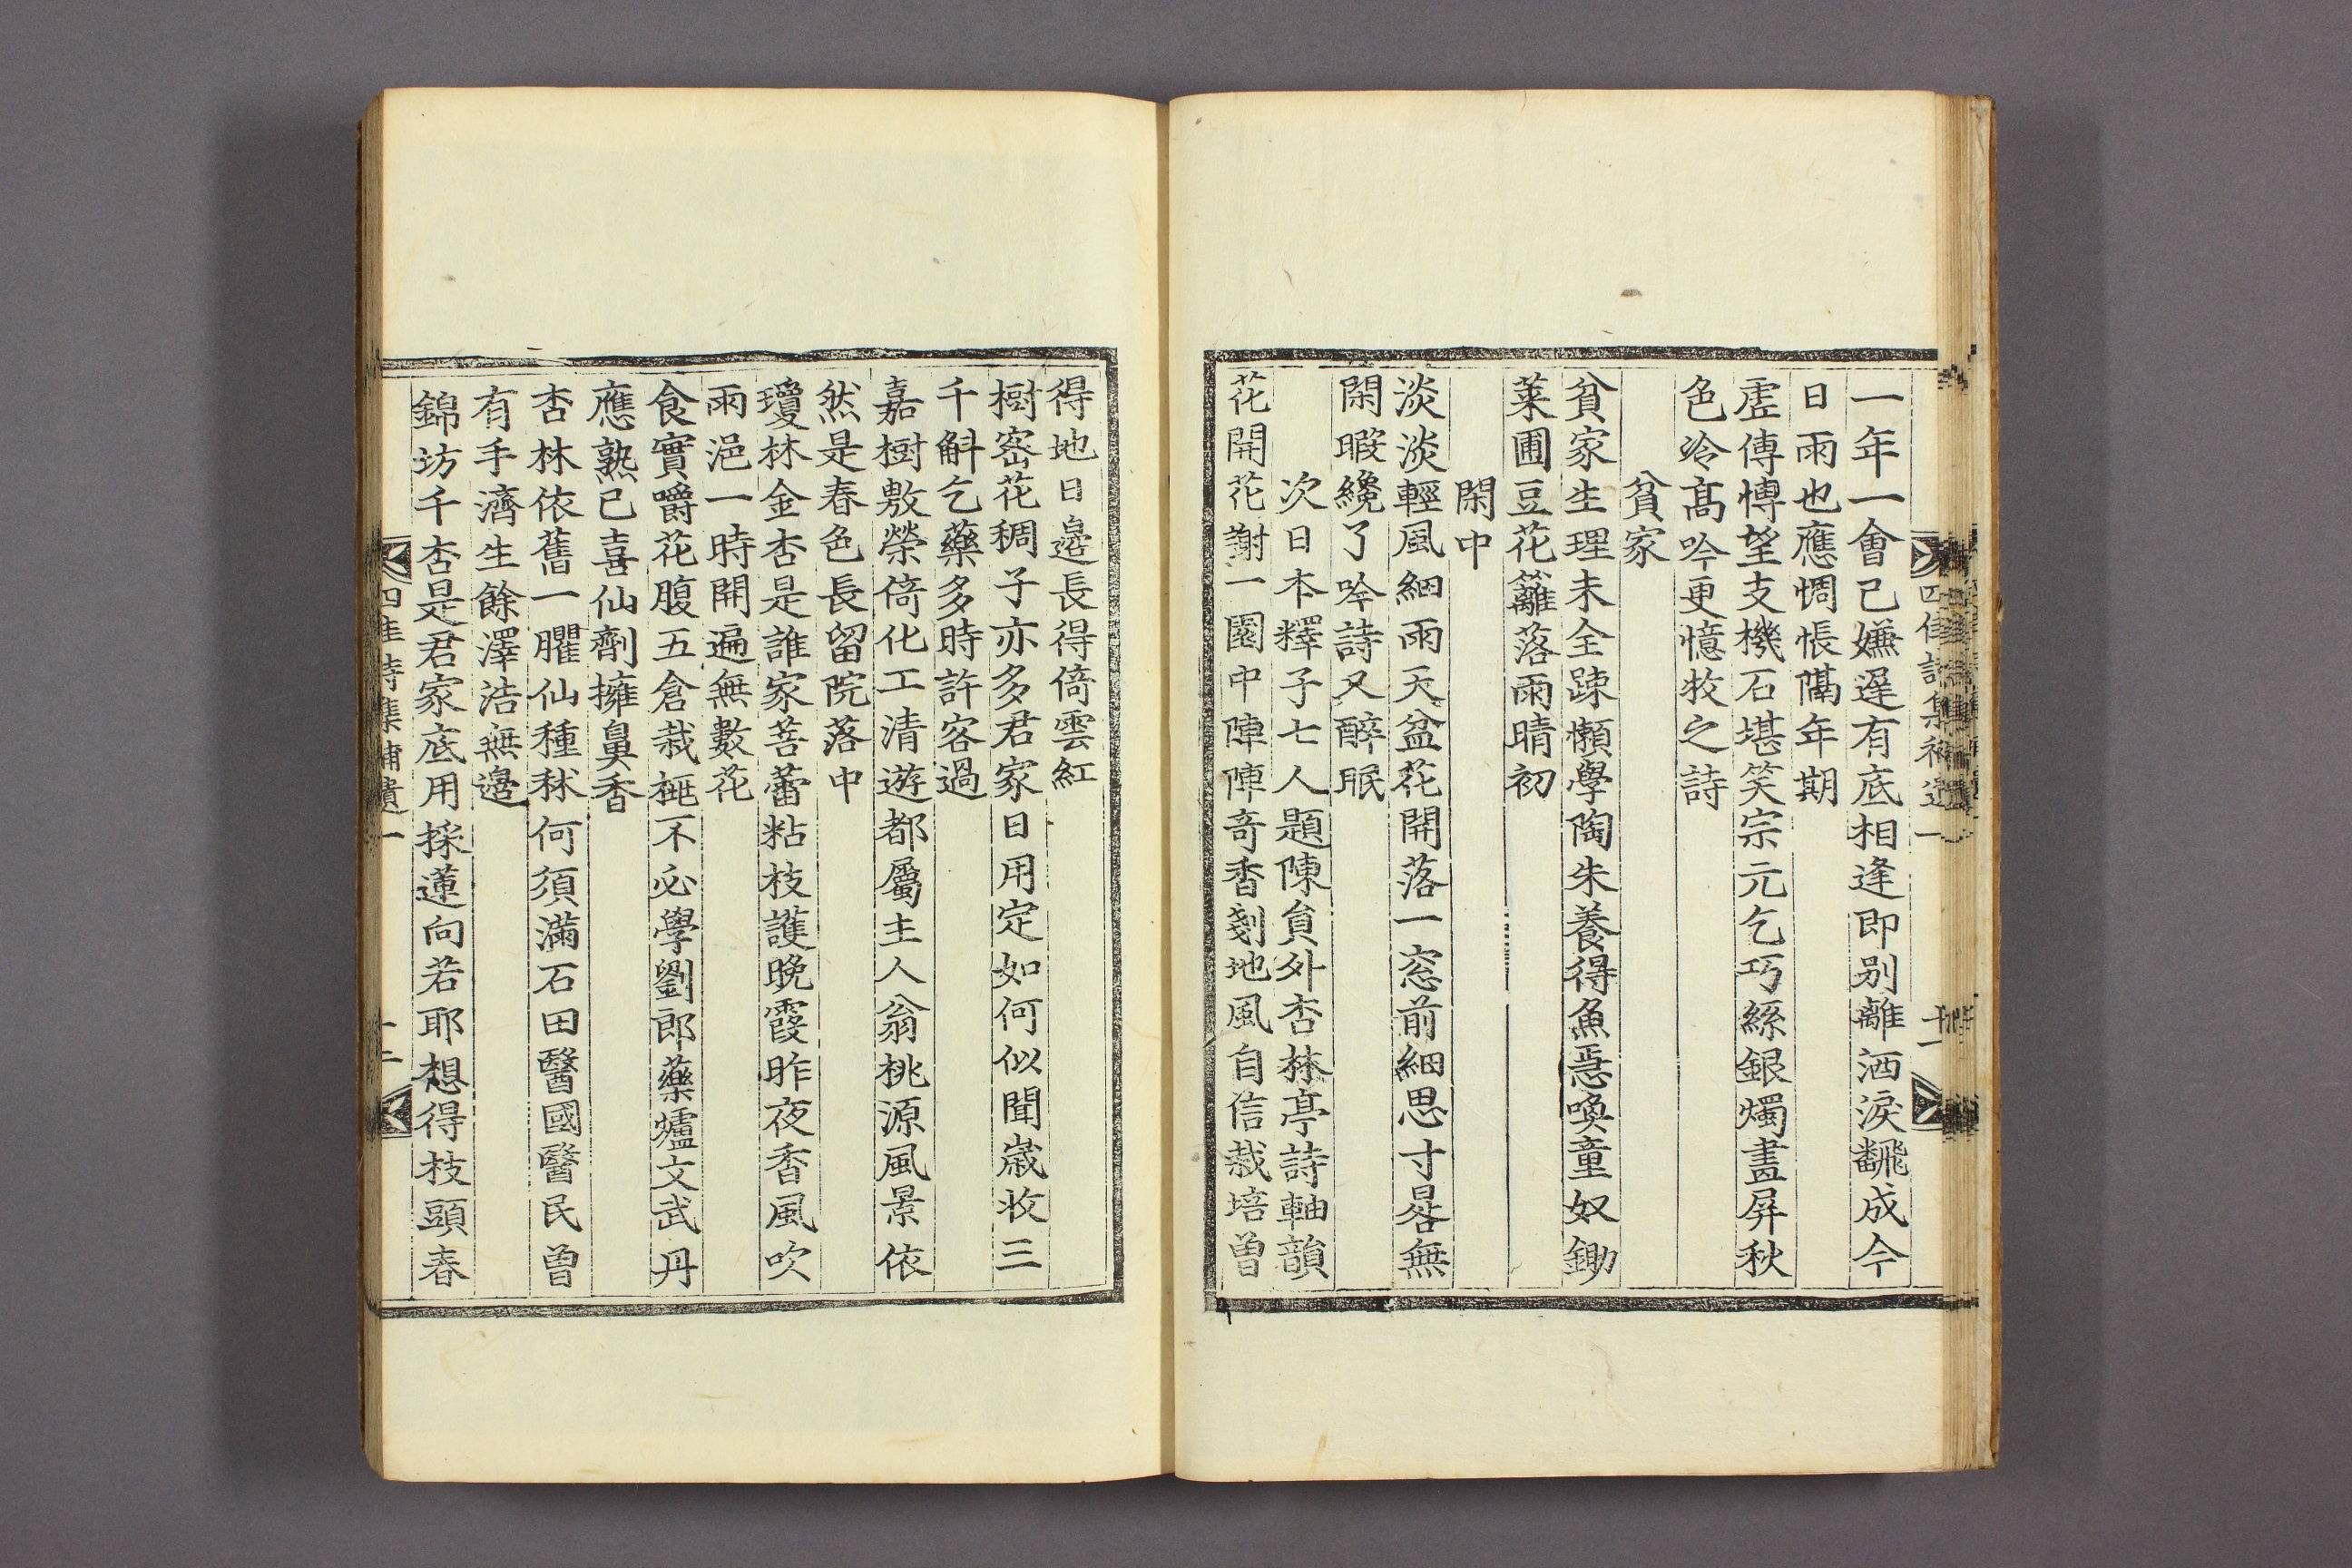 四佳詩集補遺一
一年一會已嫌遲有底相逢即别離洒淚飜成今
日雨也應惆悵隔年期
虛傳愽望支機石堪笑宗元乞巧絲銀燭畫屏秋
色冷髙吟更憶牧之詩
貧家
貧家生理未全踈懶學陶朱養得魚惡喚童奴鋤
菜圃豆花籬落雨晴初
閑中
淡淡輕風細雨天盆花開落一窓前細思寸晷無
閑暇纔了吟詩又醉眠
次日本釋子七人題陳負外杏林亭詩軸韻
花開花謝一園中陣陣奇香剗地風自信栽培曽
得地日邉長得倚雲紅
樹密花稠子亦多君家日用定如何似聞歳收三
千斛乞藥多時許客過
嘉樹敷榮倚化工清遊都屬主人翁桃源風景依
然是春色長留院落中
瓊林金杏是誰家菩蕾粘枝護晚霞昨夜香風吹
雨浥一時開遍無數花
食實嚼花腹五倉栽栬不必學劉郎藥爐文武丹
應熟已喜仙劑擁鼻香
杏林依舊一臞仙種秫何須滿石田醫國醫民曽
有手濟生餘澤浩無邉
錦坊千杏是君家底用採蓮向若耶想得枝頭春
四佳詩集補遺一